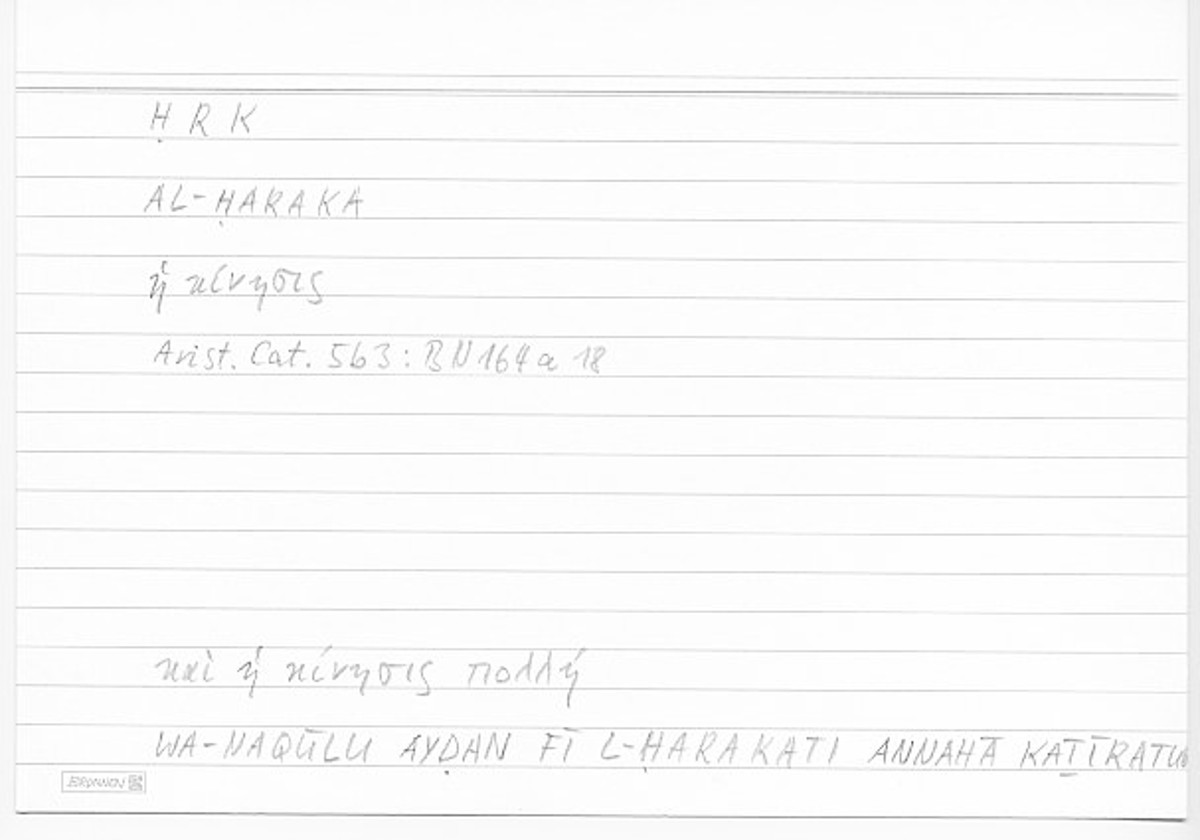 Ḥ R K
AL-ḤARAKA
ἡ κίνησις
Arist. Cat. 5b3: BN164a 18
καὶ ἡ κίνησις πολλή
WA-NAQŪLU AYḌAN FĪ L-ḤARAKATI ANNAHĀ KAṮĪRATUN
BRUNNEN